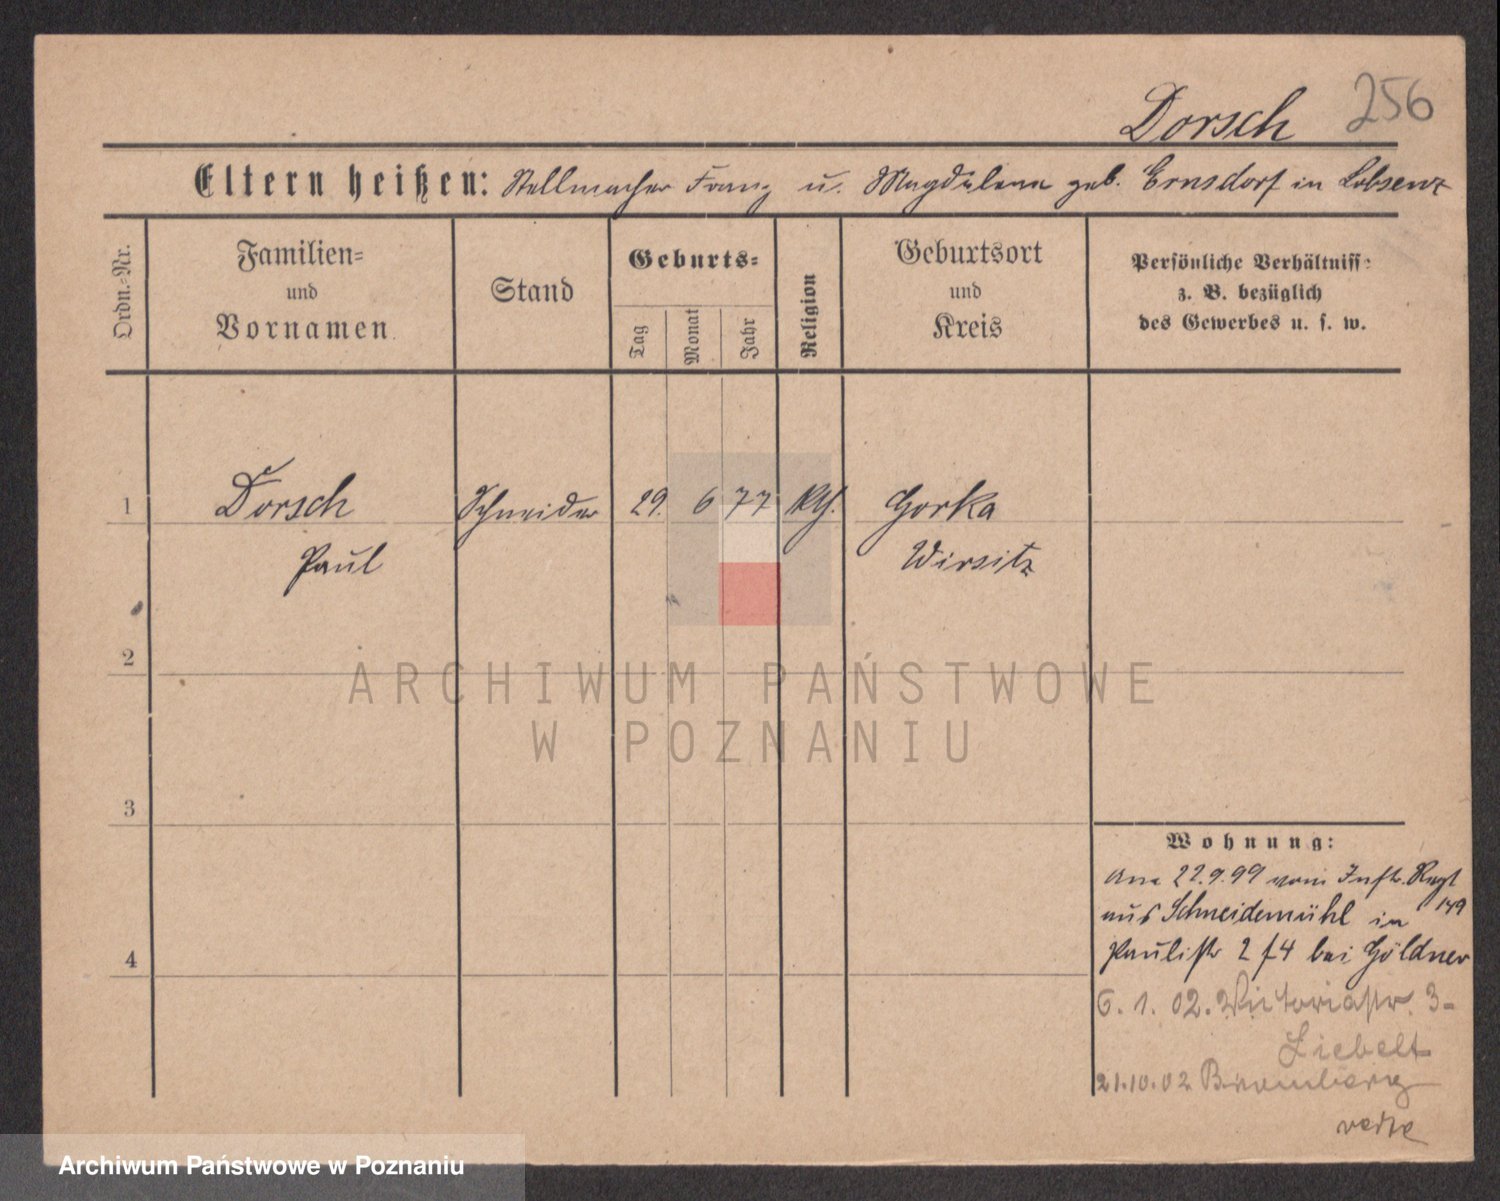 Dorsch 256
Eltern heißen: Stellmacher Franz u. Magdalena geb. Ernsdorf in Lobsens
Ordn.-Nr.
Familien-
und
Vornamen
Stand
Geburts-
Tag Monat Jahr
Religion
Geburtsort
und
Kreis
Persönliche Verhältnisse
z. B. bezüglich
des Gewerbes u. s. w.
1 Dorsch Schneider 29. 6 77 kth. Gorka
Paul Wirsitz
2
3
4
Wohnung:
am 22.9.99 vom Inftr. Regt
149
aus Schneidemühl in
Paulistr 2 f4 bei Göldner
6. 1. 02. Victoriastr. 3-
Liebelt
21.10.02 Bromberg
ARCHIWUM PAŃSTWOWE
W POZNANIU
Archiwum Państwowe w Poznaniu